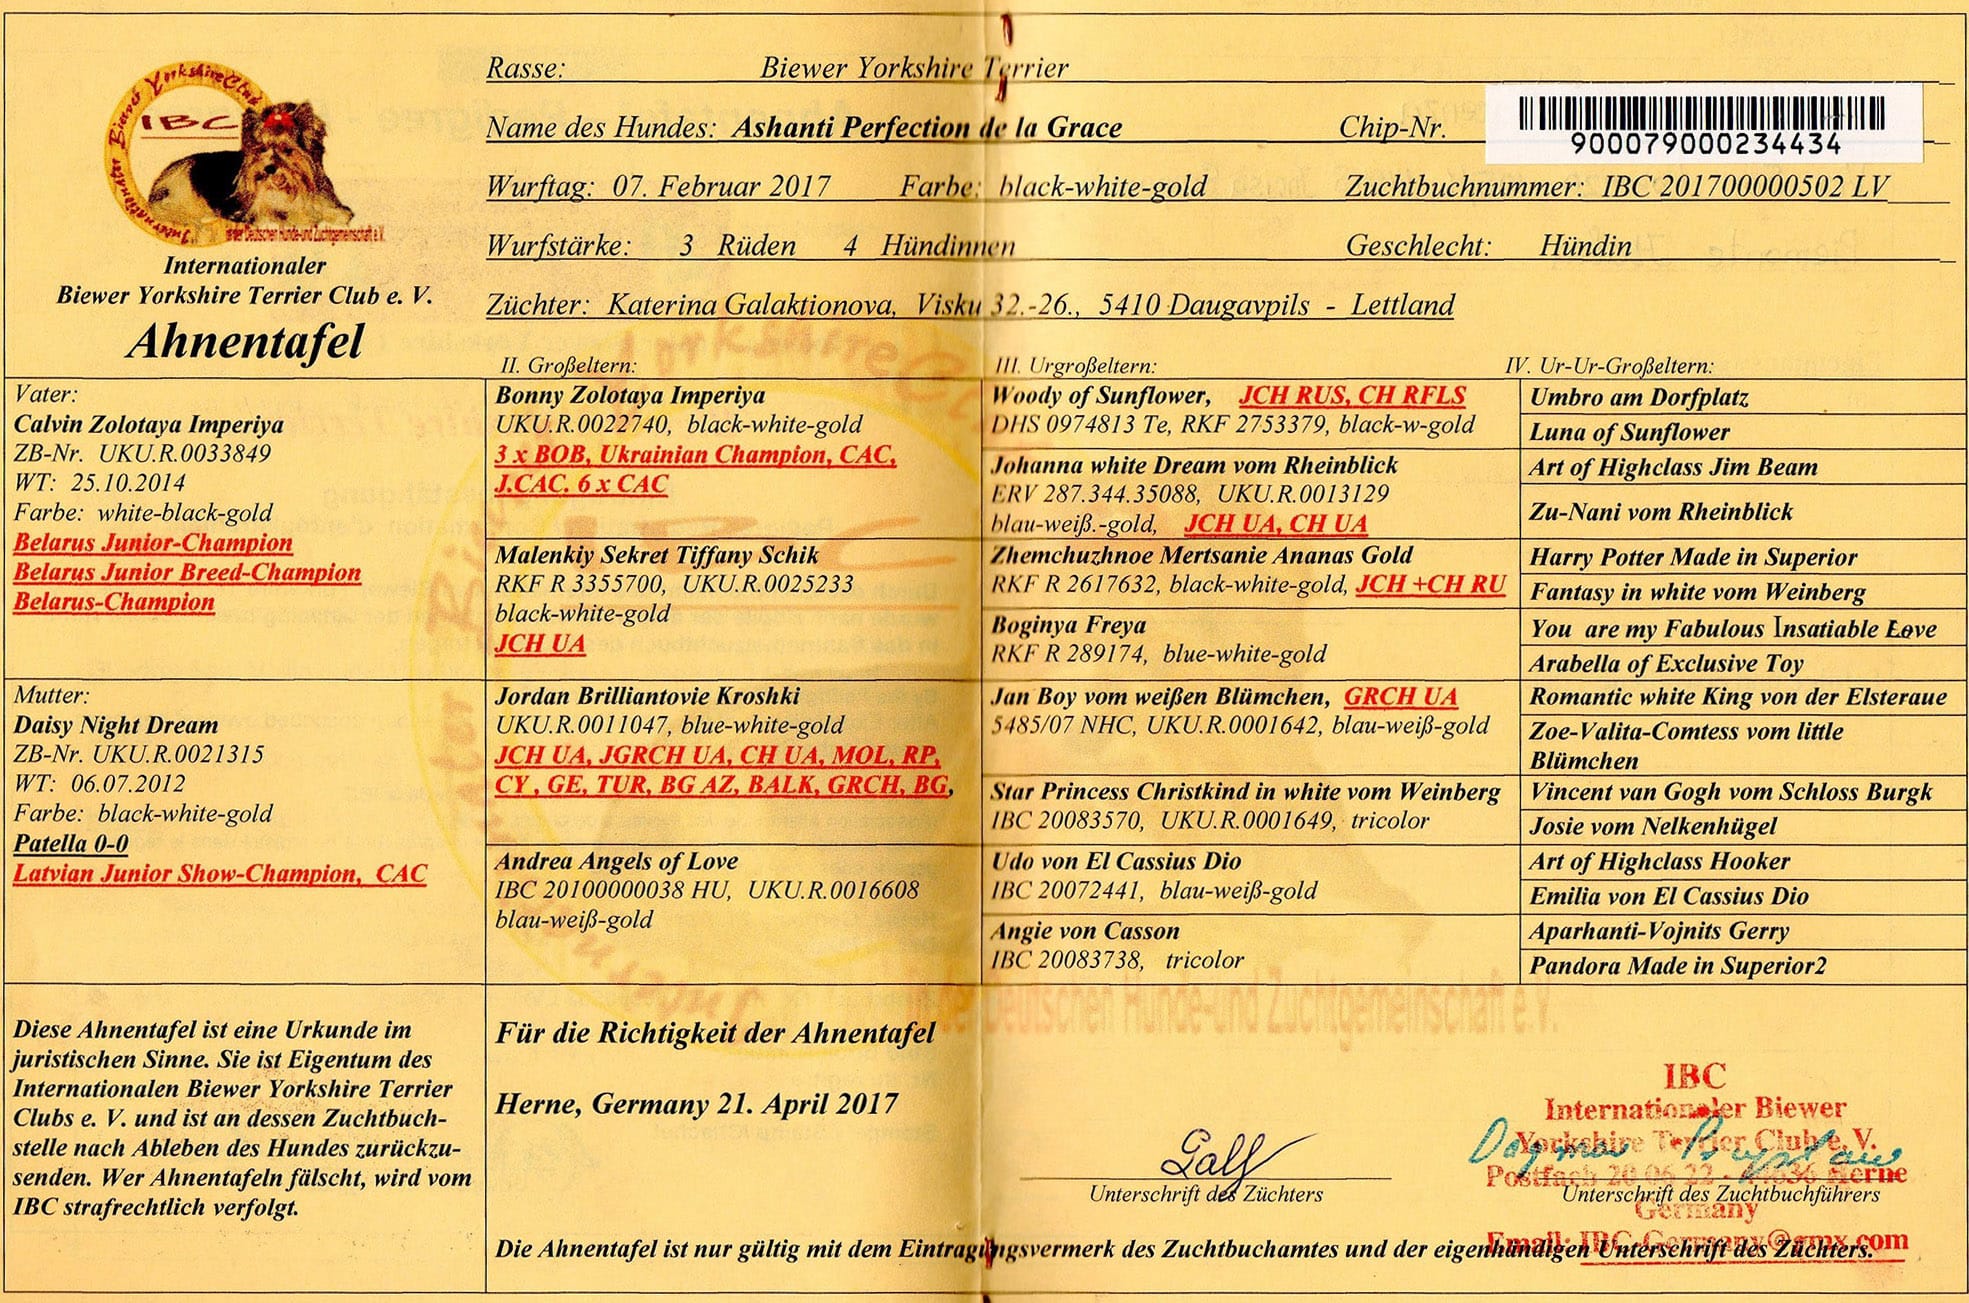 Internationaler Biewer Yorkshire Club
IBC
Internationaler
Biewer Yorkshire Terrier Club e. V.
Ahnentafel
Rasse: Biewer Yorkshire Terrier
Name des Hundes: Ashanti Perfection de la Grace Chip-Nr.
900079000234434
Wurftag: 07. Februar 2017 Farbe: black-white-gold Zuchtbuchnummer: IBC 201700000502 LV
Wurfstärke: 3 Rüden 4 Hündinnen Geschlecht: Hündin
Züchter: Katerina Galaktionova, Visku 32.-26., 5410 Daugavpils - Lettland
II. Großeltern: III. Urgroßeltern: IV. Ur-Ur-Großeltern:
Vater:
Calvin Zolotaya Imperiya
ZB-Nr. UKU.R.0033849
WT: 25.10.2014
Farbe: white-black-gold
Belarus Junior-Champion
Belarus Junior Breed-Champion
Belarus-Champion
Mutter:
Daisy Night Dream
ZB-Nr. UKU.R.0021315
WT: 06.07.2012
Farbe: black-white-gold
Patella 0-0
Latvian Junior Show-Champion, CAC
Bonny Zolotaya Imperiya
UKU.R.0022740, black-white-gold
3 x BOB, Ukrainian Champion, CAC,
J.CAC. 6 x CAC
Malenkiy Sekret Tiffany Schik
RKF R 3355700, UKU.R.0025233
black-white-gold
JCH UA
Jordan Brilliantovie Kroshki
UKU.R.0011047, blue-white-gold
JCH UA, JGRCH UA, CH UA, MOL, RP,
CY , GE, TUR, BG AZ, BALK, GRCH, BG,
Andrea Angels of Love
IBC 20100000038 HU, UKU.R.0016608
blau-weiß-gold
Woody of Sunflower, JCH RUS, CH RFLS
DHS 0974813 Te, RKF 2753379, black-w-gold
Johanna white Dream vom Rheinblick
ERV 287.344.35088, UKU.R.0013129
blau-weiß.-gold, JCH UA, CH UA
Zhemchuzhnoe Mertsanie Ananas Gold
RKF R 2617632, black-white-gold, JCH +CH RU
Boginya Freya
RKF R 289174, blue-white-gold
Jan Boy vom weißen Blümchen, GRCH UA
5485/07 NHC, UKU.R.0001642, blau-weiß-gold
Star Princess Christkind in white vom Weinberg
IBC 20083570, UKU.R.0001649, tricolor
Udo von El Cassius Dio
IBC 20072441, blau-weiß-gold
Angie von Casson
IBC 20083738, tricolor
Umbro am Dorfplatz
Luna of Sunflower
Art of Highclass Jim Beam
Zu-Nani vom Rheinblick
Harry Potter Made in Superior
Fantasy in white vom Weinberg
You are my Fabulous Insatiable Love
Arabella of Exclusive Toy
Romantic white King von der Elsteraue
Zoe-Valita-Comtess vom little
Blümchen
Vincent van Gogh vom Schloss Burgk
Josie vom Nelkenhügel
Art of Highclass Hooker
Emilia von El Cassius Dio
Aparhanti-Vojnits Gerry
Pandora Made in Superior2
Diese Ahnentafel ist eine Urkunde im
juristischen Sinne. Sie ist Eigentum des
Internationalen Biewer Yorkshire Terrier
Clubs e. V. und ist an dessen Zuchtbuch-
stelle nach Ableben des Hundes zurückzu-
senden. Wer Ahnentafeln fälscht, wird vom
IBC strafrechtlich verfolgt.
Für die Richtigkeit der Ahnentafel
Herne, Germany 21. April 2017
Unterschrift des Züchters
IBC
Internationaler Biewer
Yorkshire Terrier Club e. V.
Postfach 20 06 22 - 44636 Herne
Germany
Email: IBC-Germany@gmx.com
Unterschrift des Zuchtbuchführers
Die Ahnentafel ist nur gültig mit dem Eintragungsvermerk des Zuchtbuchamtes und der eigenhändigen Unterschrift des Züchters.